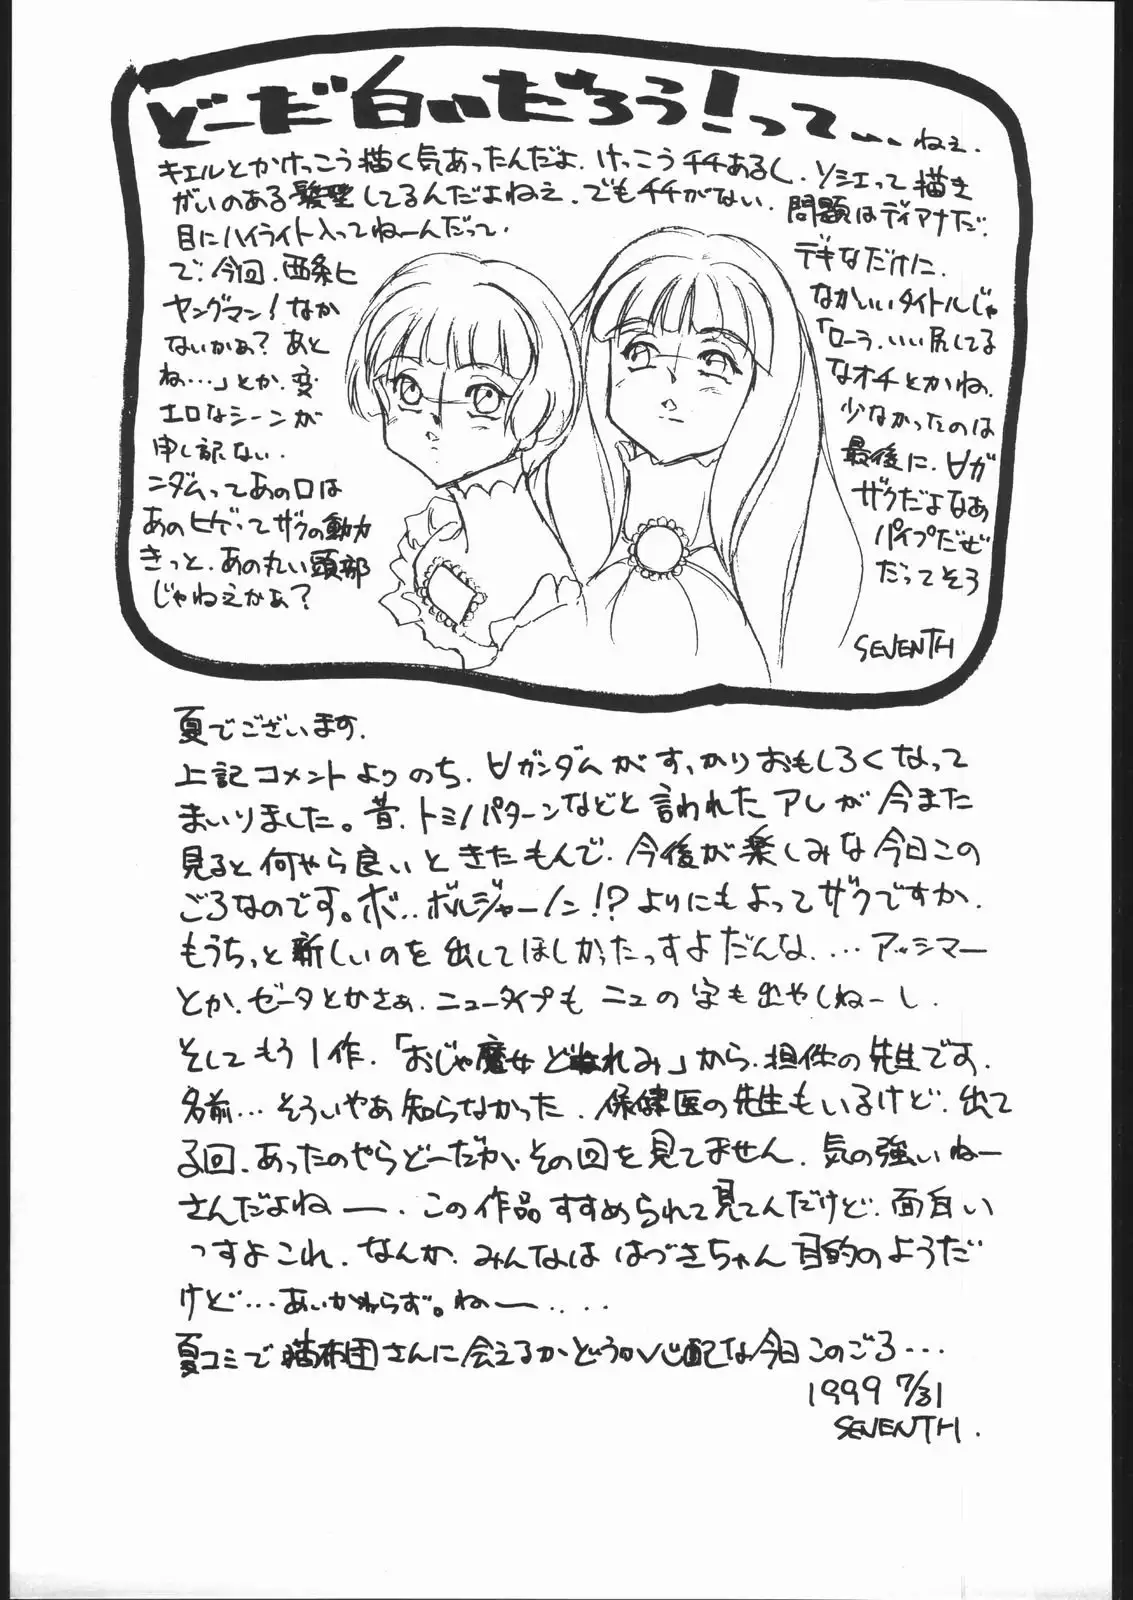 どーだ白いだろう!って…ねぇ.
キエルとかけっこう描く気あったんだよ.けっこうチチあるし.ソシエって描き
がいのある髪型してるんだよねえ.でもチチがない.問題はディアナだ.
目にハイライト入ってねーんだって.
で.今回.西条ヒデキなだけに.
ヤングマン!なかなかいいタイトルじゃ
ないかぁ?あと「ローラ.いい尻してる
ね…」とか.変なオチとかね.
エロなシーンが少なかったのは
申し訳ない.最後に.∀ガ
ンダムってあの口はザクだよなあ
あのヒゲってザクの動力パイプだぜ
きっと.あの丸い頭部だってそろ
じゃねえかぁ?
SEVENTH
夏でございます.
上記コメントよりのち.∀ガンダムがすっかりおもしろくなって
まいりました。昔.トミノパターンなどと言われたアレが今また
見ると何やら良いときたもんで.今後が楽しみな今日この
ごろなのです。ボ..ボルジャーノン!?よりにもよってザクですか.
もうちっと新しいのを出してほしかったっすよだんな....アッシマー
とか.ゼータとかさぁ.ニュータイプもニュの字も出やしねーし.
そしてもう1作.「おじゃ魔女どれみ」から.担任の先生です.
名前...そういやあ知らなかった.保健医の先生もいるけど.出て
る回.あったのやらどーだか.その回を見てません.気の強いねー
さんだよねー.この作品すすめられて見てんだけど.面白い
っすよこれ.なんか.みんなははづきちゃん目的のようだ
けど...あいかわらず。ねー....
夏コミで猫布団さんに会えるかどうか心配な今日このごろ...
1999 7/31
SEVENTH.